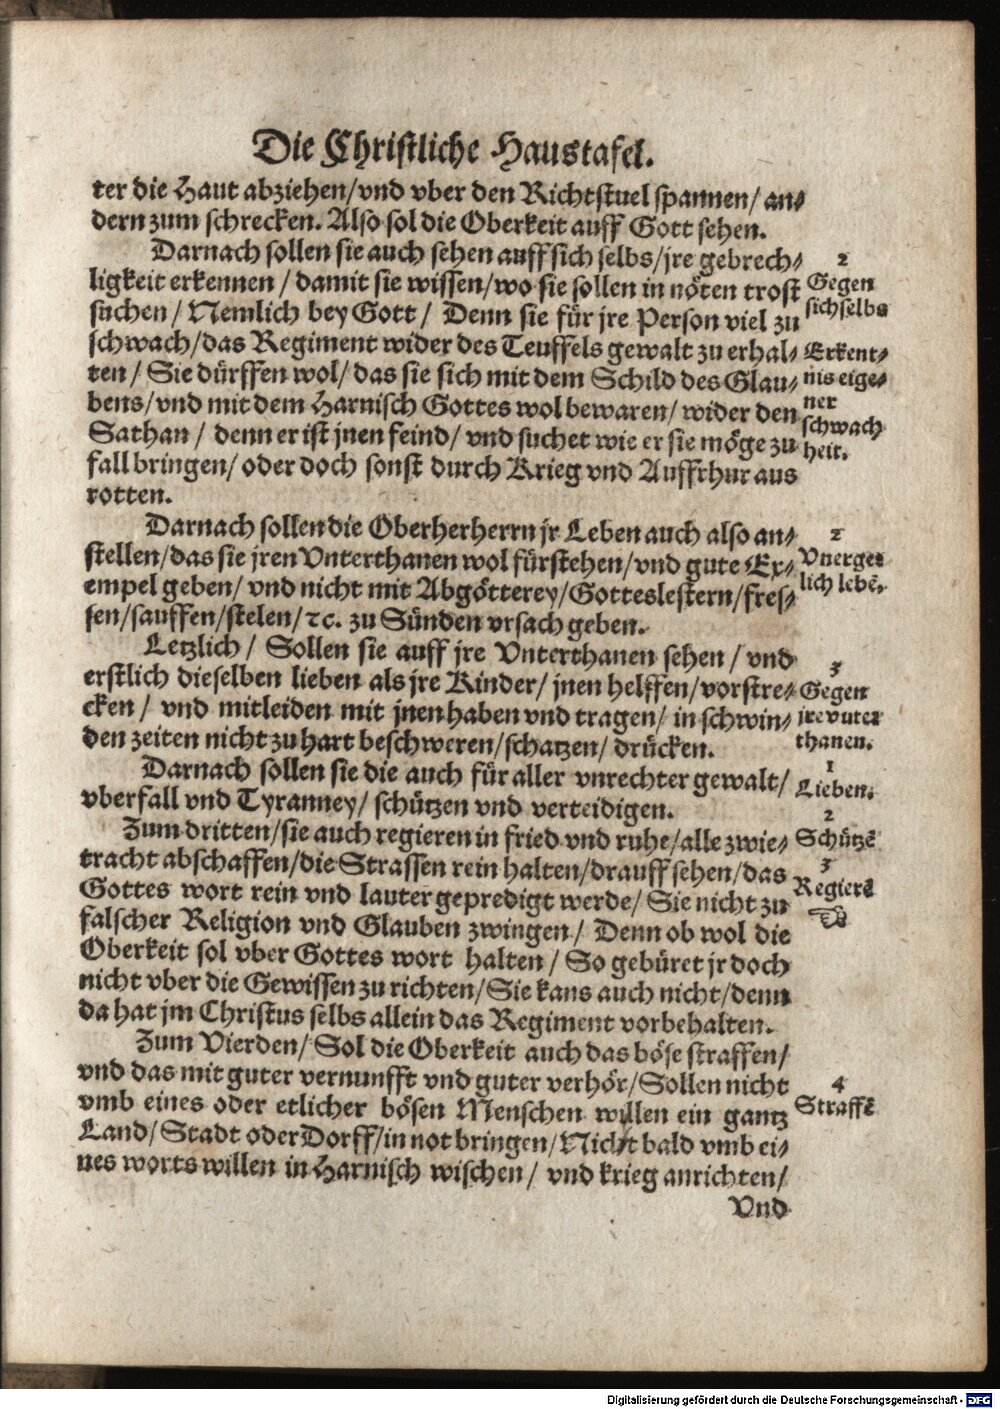 Die Christliche Haustafel.
ter die Haut abziehen/vnd vber den Richtstuel spannen/ an⸗
dern zum schrecken. Also sol die Oberkeit auff Gott sehen.
Darnach sollen sie auch sehen auff sich selbs/jre gebrech⸗
ligkeit erkennen / damit sie wissen/wo sie sollen in nöten trost
suchen / Nemlich bey Gott / Denn sie für jre Person viel zu
schwach/das Regiment wider des Teuffels gewalt zu erhal⸗
ten / Sie dürffen wol/ das sie sich mit dem Schild des Glau⸗
bens/vnd mit dem Harnisch Gottes wol bewaren/ wider den
Sathan / denn er ist jnen feind/ vnd suchet wie er sie möge zu
fall bringen/ oder doch sonst durch Krieg vnd Auffrhur aus
rotten.
2
Gegen
sich selbs
Erkent⸗
nis eige⸗
ner
schwach
heit.
Darnach sollen die Oberherherrn jr Leben auch also an⸗
stellen/das sie jren Vnterthanen wol fürstehen/vnd gute Ex⸗
empel geben/ vnd nicht mit Abgötterey/Gotteslestern/fres⸗
sen/sauffen/stelen/ꝛc. zu Sünden vrsach geben.
2
Vnerger
lich lebē.
Letzlich / Sollen sie auff jre Vnterthanen sehen / vnd
erstlich dieselben lieben als jre Kinder/ jnen helffen/vorstre⸗
cken / vnd mitleiden mit jnen haben vnd tragen/ in schwin⸗
den zeiten nicht zu hart beschweren/schatzen/ drücken.
3
Gegen
jre vnter
thanen.
Darnach sollen sie die auch für aller vnrechter gewalt/
vberfall vnd Tyranney/ schützen vnd verteidigen.
1
Lieben.
2
Schützē
Zum dritten/sie auch regieren in fried vnd ruhe/alle zwie⸗
tracht abschaffen/die Strassen rein halten/drauff sehen/das
Gottes wort rein vnd lauter gepredigt werde/ Sie nicht zu
falscher Religion vnd Glauben zwingen / Denn ob wol die
Oberkeit sol vber Gottes wort halten / So gebüret jr doch
nicht vber die Gewissen zu richten/Sie kans auch nicht/denn
da hat jm Christus selbs allein das Regiment vorbehalten.
3
Regierē
☜
Zum Vierden/ Sol die Oberkeit auch das böse straffen/
vnd das mit guter vernunfft vnd guter verhör/Sollen nicht
vmb eines oder etlicher bösen Menschen willen ein gantz
Land/ Stadt oder Dorff/in not bringen/Nicht bald vmb ei⸗
nes worts willen in Harnisch wischen / vnd krieg anrichten/
4
Straffē
Vnd
Digitalisierung gefördert durch die Deutsche Forschungsgemeinschaft - DFG